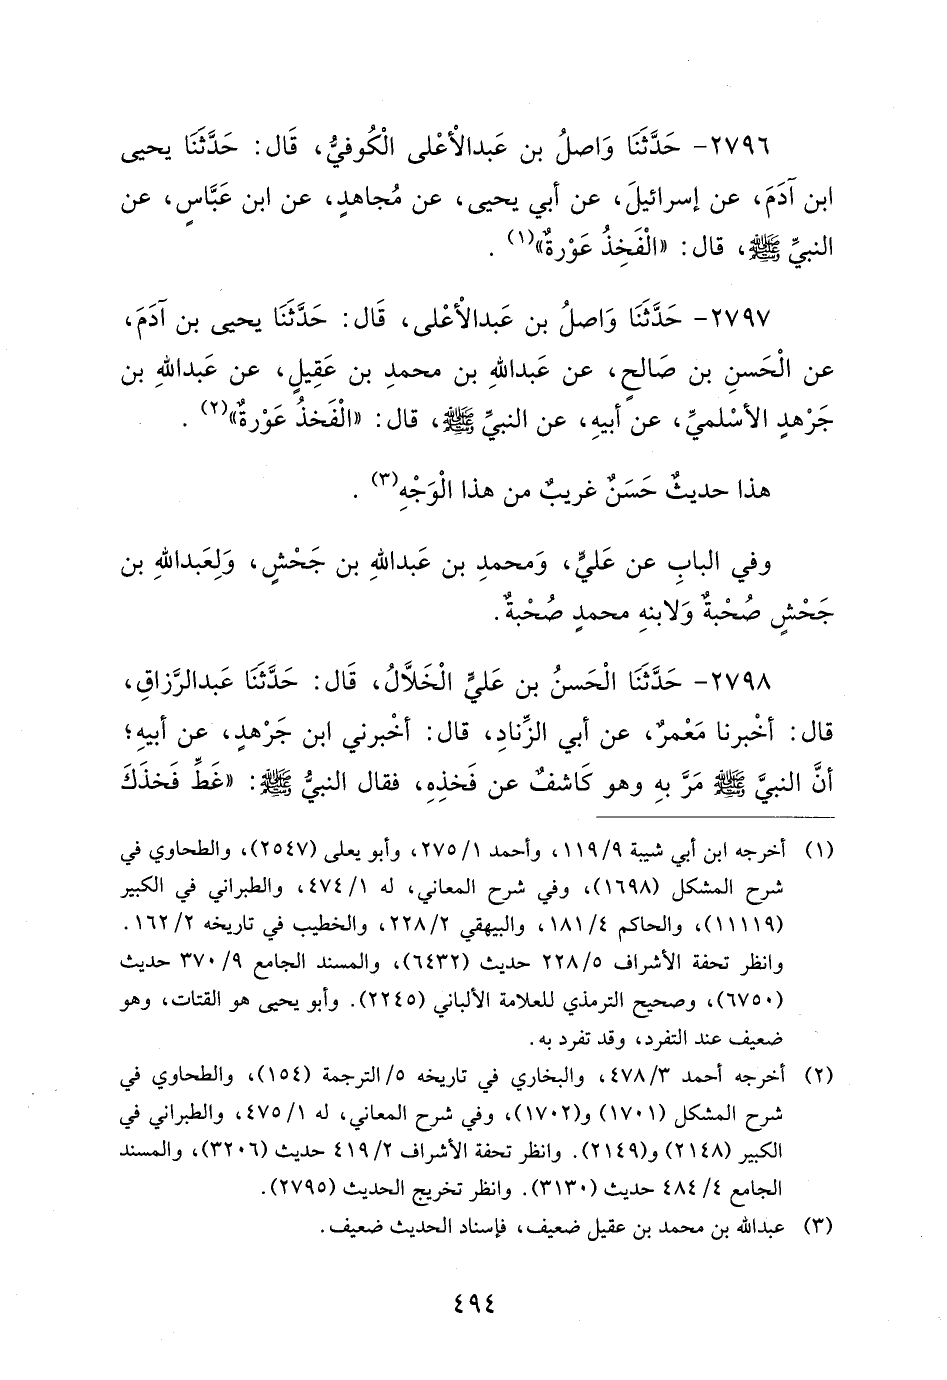 ٢٧٩٦- حَدَّثَنَا وَاصلُ بن عَبدالْأعْلى الْكُوفيُّ، قَال: حَدَّثَنَا يحيى
ابن آدَمَ، عن إسرائيلَ، عن أبي يحيى، عن مُجاهدٍ، عن ابن عَبَّاسٍ، عن
النبيِّ ﷺ، قال: «الْفَخِذُ عَوْرةٌ»(١) .
٢٧٩٧- حَدَّثَنَا وَاصلُ بن عَبدالأعْلى، قَال: حَدَّثَنَا يحيى بن آدَمَ،
عن الْحَسنِ بن صَالحٍ، عن عَبدالله بن محمدِ بن عَقِيلٍ، عن عَبدالله بن
جَرْهدٍ الأسْلميِّ، عن أبيهِ، عن النبيِّ ﷺ، قال: «الْفَخذُ عَوْرةٌ»(٢) .
هذا حديثٌ حَسَنٌ غريبٌ من هذا الْوَجْهِ(٣) .
وفي البابِ عن عَليٍّ، وَمحمدِ بن عَبدالله بن جَحْشٍ، وَلِعَبدالله بن
جَحْشٍ صُحْبةٌ وَلابنهِ محمدٍ صُحْبةٌ.
٢٧٩٨- حَدَّثَنَا الْحَسنُ بن عَليٍّ الْخَلَّالُ، قَال: حَدَّثَنَا عَبدالرَّزاقِ،
قال: أخْبرنا مَعْمرٌ، عن أبي الزِّنادِ، قال: أخْبرني ابن جَرْهدٍ، عن أبيهِ؛
أنَّ النبيَّ ﷺ مَرَّ بهِ وهو كَاشفٌ عن فَخذِهِ، فقال النبيُّ ﷺ: «غَطِّ فَخذَكَ
(١) أخرجه ابن أبي شيبة ٩/ ١١٩، وأحمد ١/ ٢٧٥، وأبو يعلى (٢٥٤٧)، والطحاوي في
شرح المشكل (١٦٩٨)، وفي شرح المعاني، له ١/ ٤٧٤، والطبراني في الكبير
(١١١١٩)، والحاكم ٤/ ١٨١، والبيهقي ٢/ ٢٢٨، والخطيب في تاريخه ٢/ ١٦٢ .
وانظر تحفة الأشراف ٥/ ٢٢٨ حديث (٦٤٣٢)، والمسند الجامع ٩/ ٣٧٠ حديث
(٦٧٥٠)، وصحيح الترمذي للعلامة الألباني (٢٢٤٥). وأبو يحيى هو القتات، وهو
ضعيف عند التفرد، وقد تفرد به.
(٢) أخرجه أحمد ٣/ ٤٧٨، والبخاري في تاريخه ٥/ الترجمة (١٥٤)، والطحاوي في
شرح المشكل (١٧٠١) و(١٧٠٢)، وفي شرح المعاني، له ١/ ٤٧٥، والطبراني في
الكبير (٢١٤٨) و(٢١٤٩). وانظر تحفة الأشراف ٢/ ٤١٩ حديث (٣٢٠٦)، والمسند
الجامع ٤/ ٤٨٤ حديث (٣١٣٠). وانظر تخريج الحديث (٢٧٩٥).
(٣) عبدالله بن محمد بن عقيل ضعيف، فإسناد الحديث ضعيف.
٤٩٤